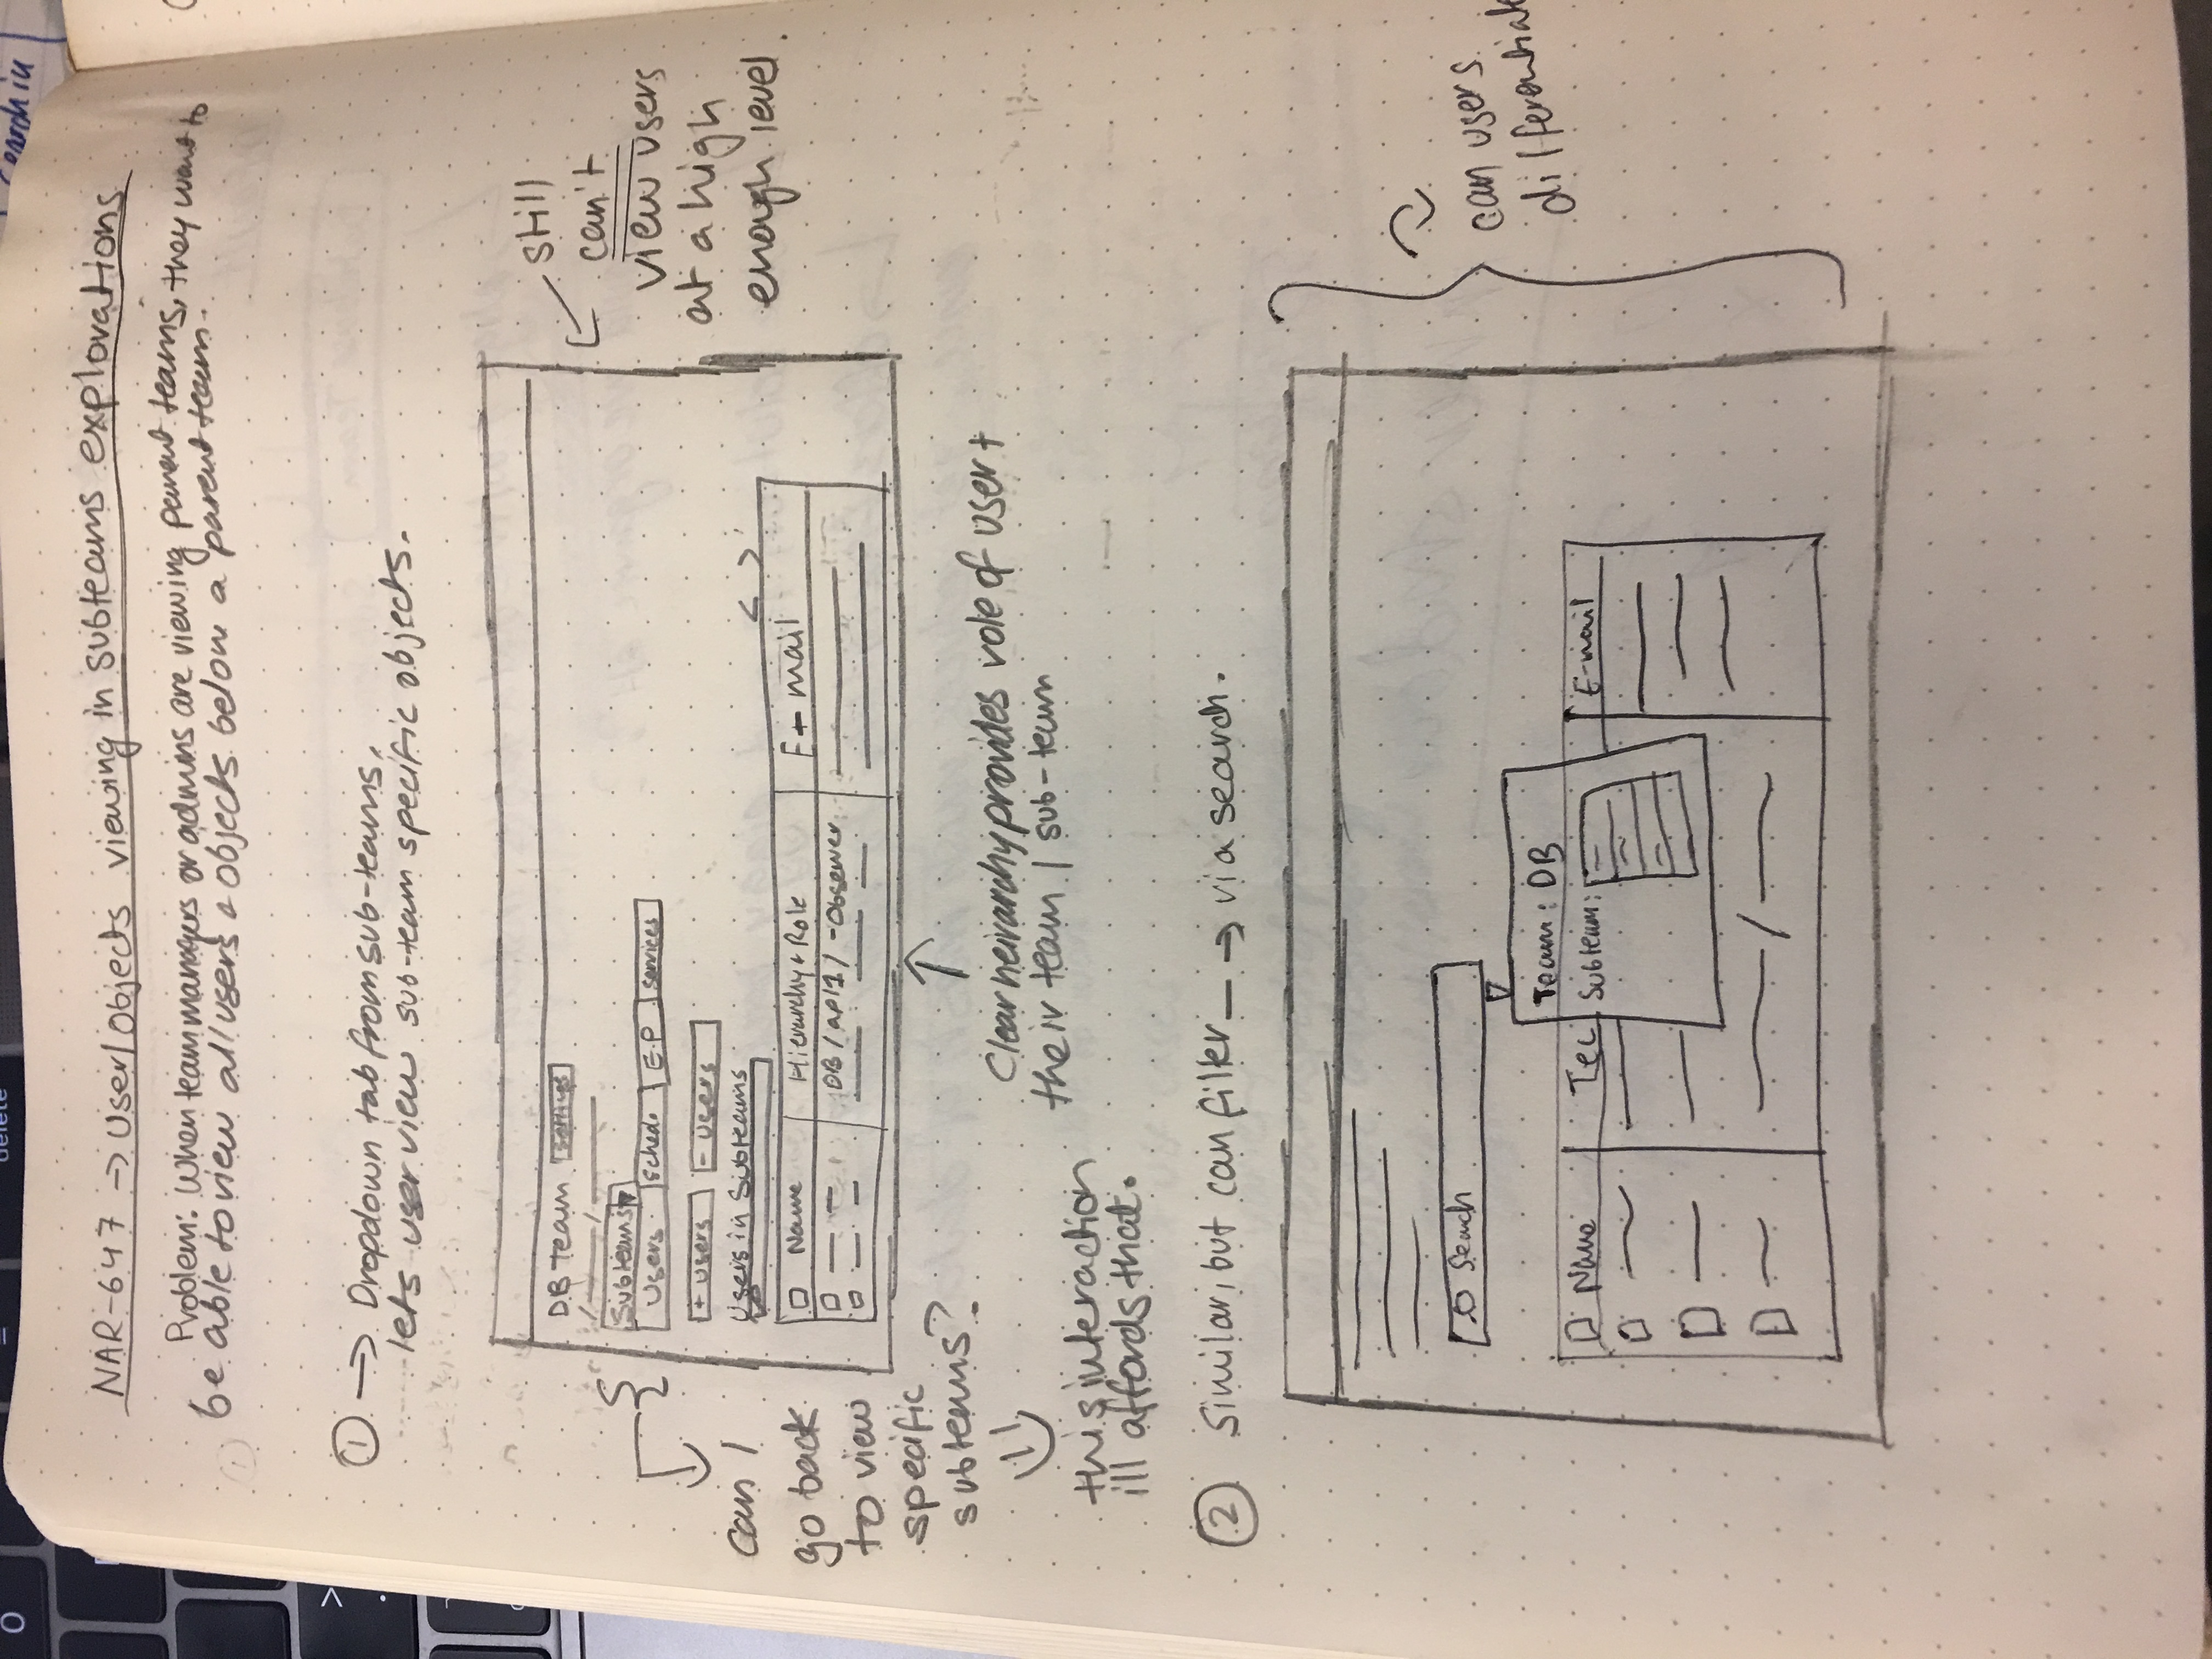 delete
Search in
NAR-647 → User/Objects viewing in subteams explorations
Problem: When team managers or admins are viewing parent teams, they want to
be able to view all users & objects below a parent team.
① → Dropdown tab from sub-teams.
lets user view sub-team specific objects.
DB team settings
Subteams ▾
Users Sched. E.P services
+ users - users
Users in Subteams
< >
Name Hierarchy + Role E-mail
DB / api1 / - Observer
still
can't
view users
at a high
enough level.
can I
go back
to view
specific
subteams?
this interaction
ill affords that.
Clear heirarchy provides role of user +
their team / sub-team
② Similar, but can filter — → via search.
Search
Team: DB
Subteam:
Name Tec E-mail
can users
differentiate